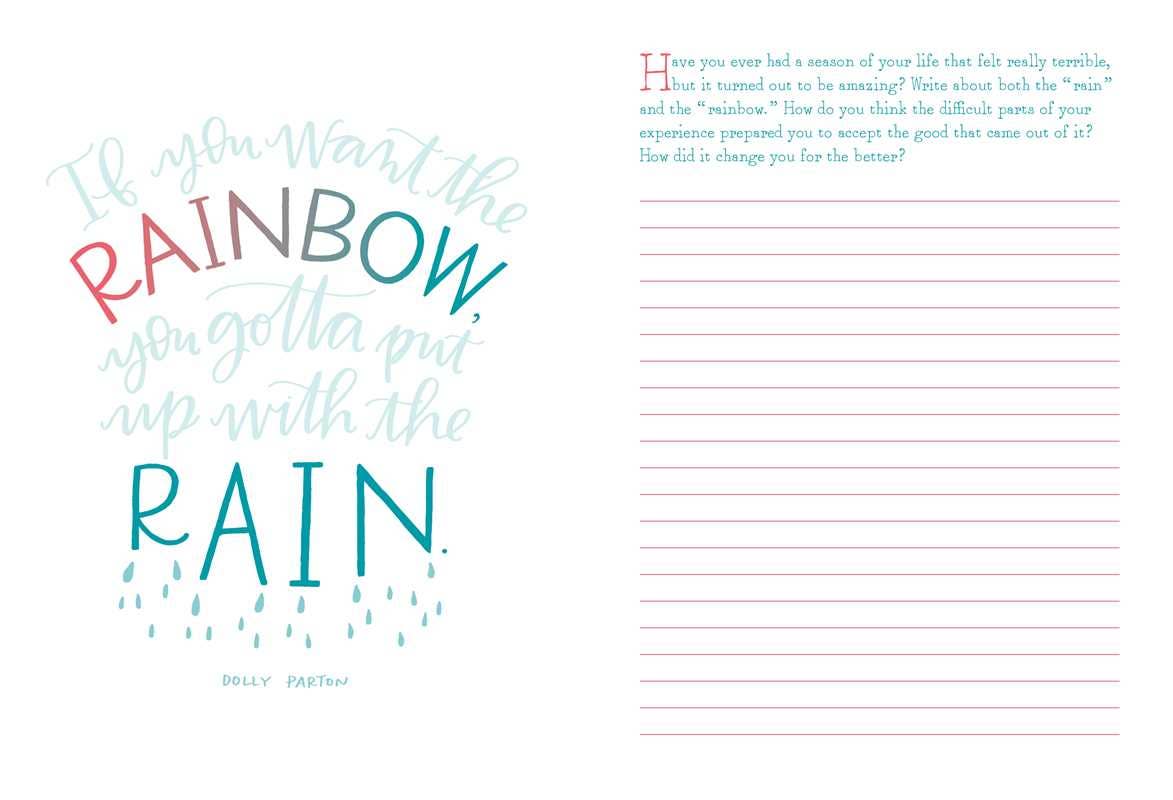 If you want the
RAINBOW,
you gotta put
up with the
RAIN.
DOLLY PARTON
Have you ever had a season of your life that felt really terrible,
but it turned out to be amazing? Write about both the “rain”
and the “rainbow.” How do you think the difficult parts of your
experience prepared you to accept the good that came out of it?
How did it change you for the better?